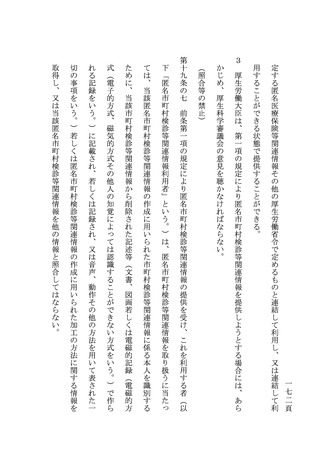 一七二頁
定する匿名医療保険等関連情報その他の厚生労働省令で定めるものと連結して利用し、又は連結して利
用することができる状態で提供することができる。
３　厚生労働大臣は、第一項の規定により匿名市町村検診等関連情報を提供しようとする場合には、あら
かじめ、厚生科学審議会の意見を聴かなければならない。
（照合等の禁止）
第十九条の七　前条第一項の規定により匿名市町村検診等関連情報の提供を受け、これを利用する者（以
下「匿名市町村検診等関連情報利用者」という。）は、匿名市町村検診等関連情報を取り扱うに当たつ
ては、当該匿名市町村検診等関連情報の作成に用いられた市町村検診等関連情報に係る本人を識別する
ために、当該市町村検診等関連情報から削除された記述等（文書、図画若しくは電磁的記録（電磁的方
式（電子的方式、磁気的方式その他人の知覚によつては認識することができない方式をいう。）で作ら
れる記録をいう。）に記載され、若しくは記録され、又は音声、動作その他の方法を用いて表された一
切の事項をいう。）若しくは匿名市町村検診等関連情報の作成に用いられた加工の方法に関する情報を
取得し、又は当該匿名市町村検診等関連情報を他の情報と照合してはならない。